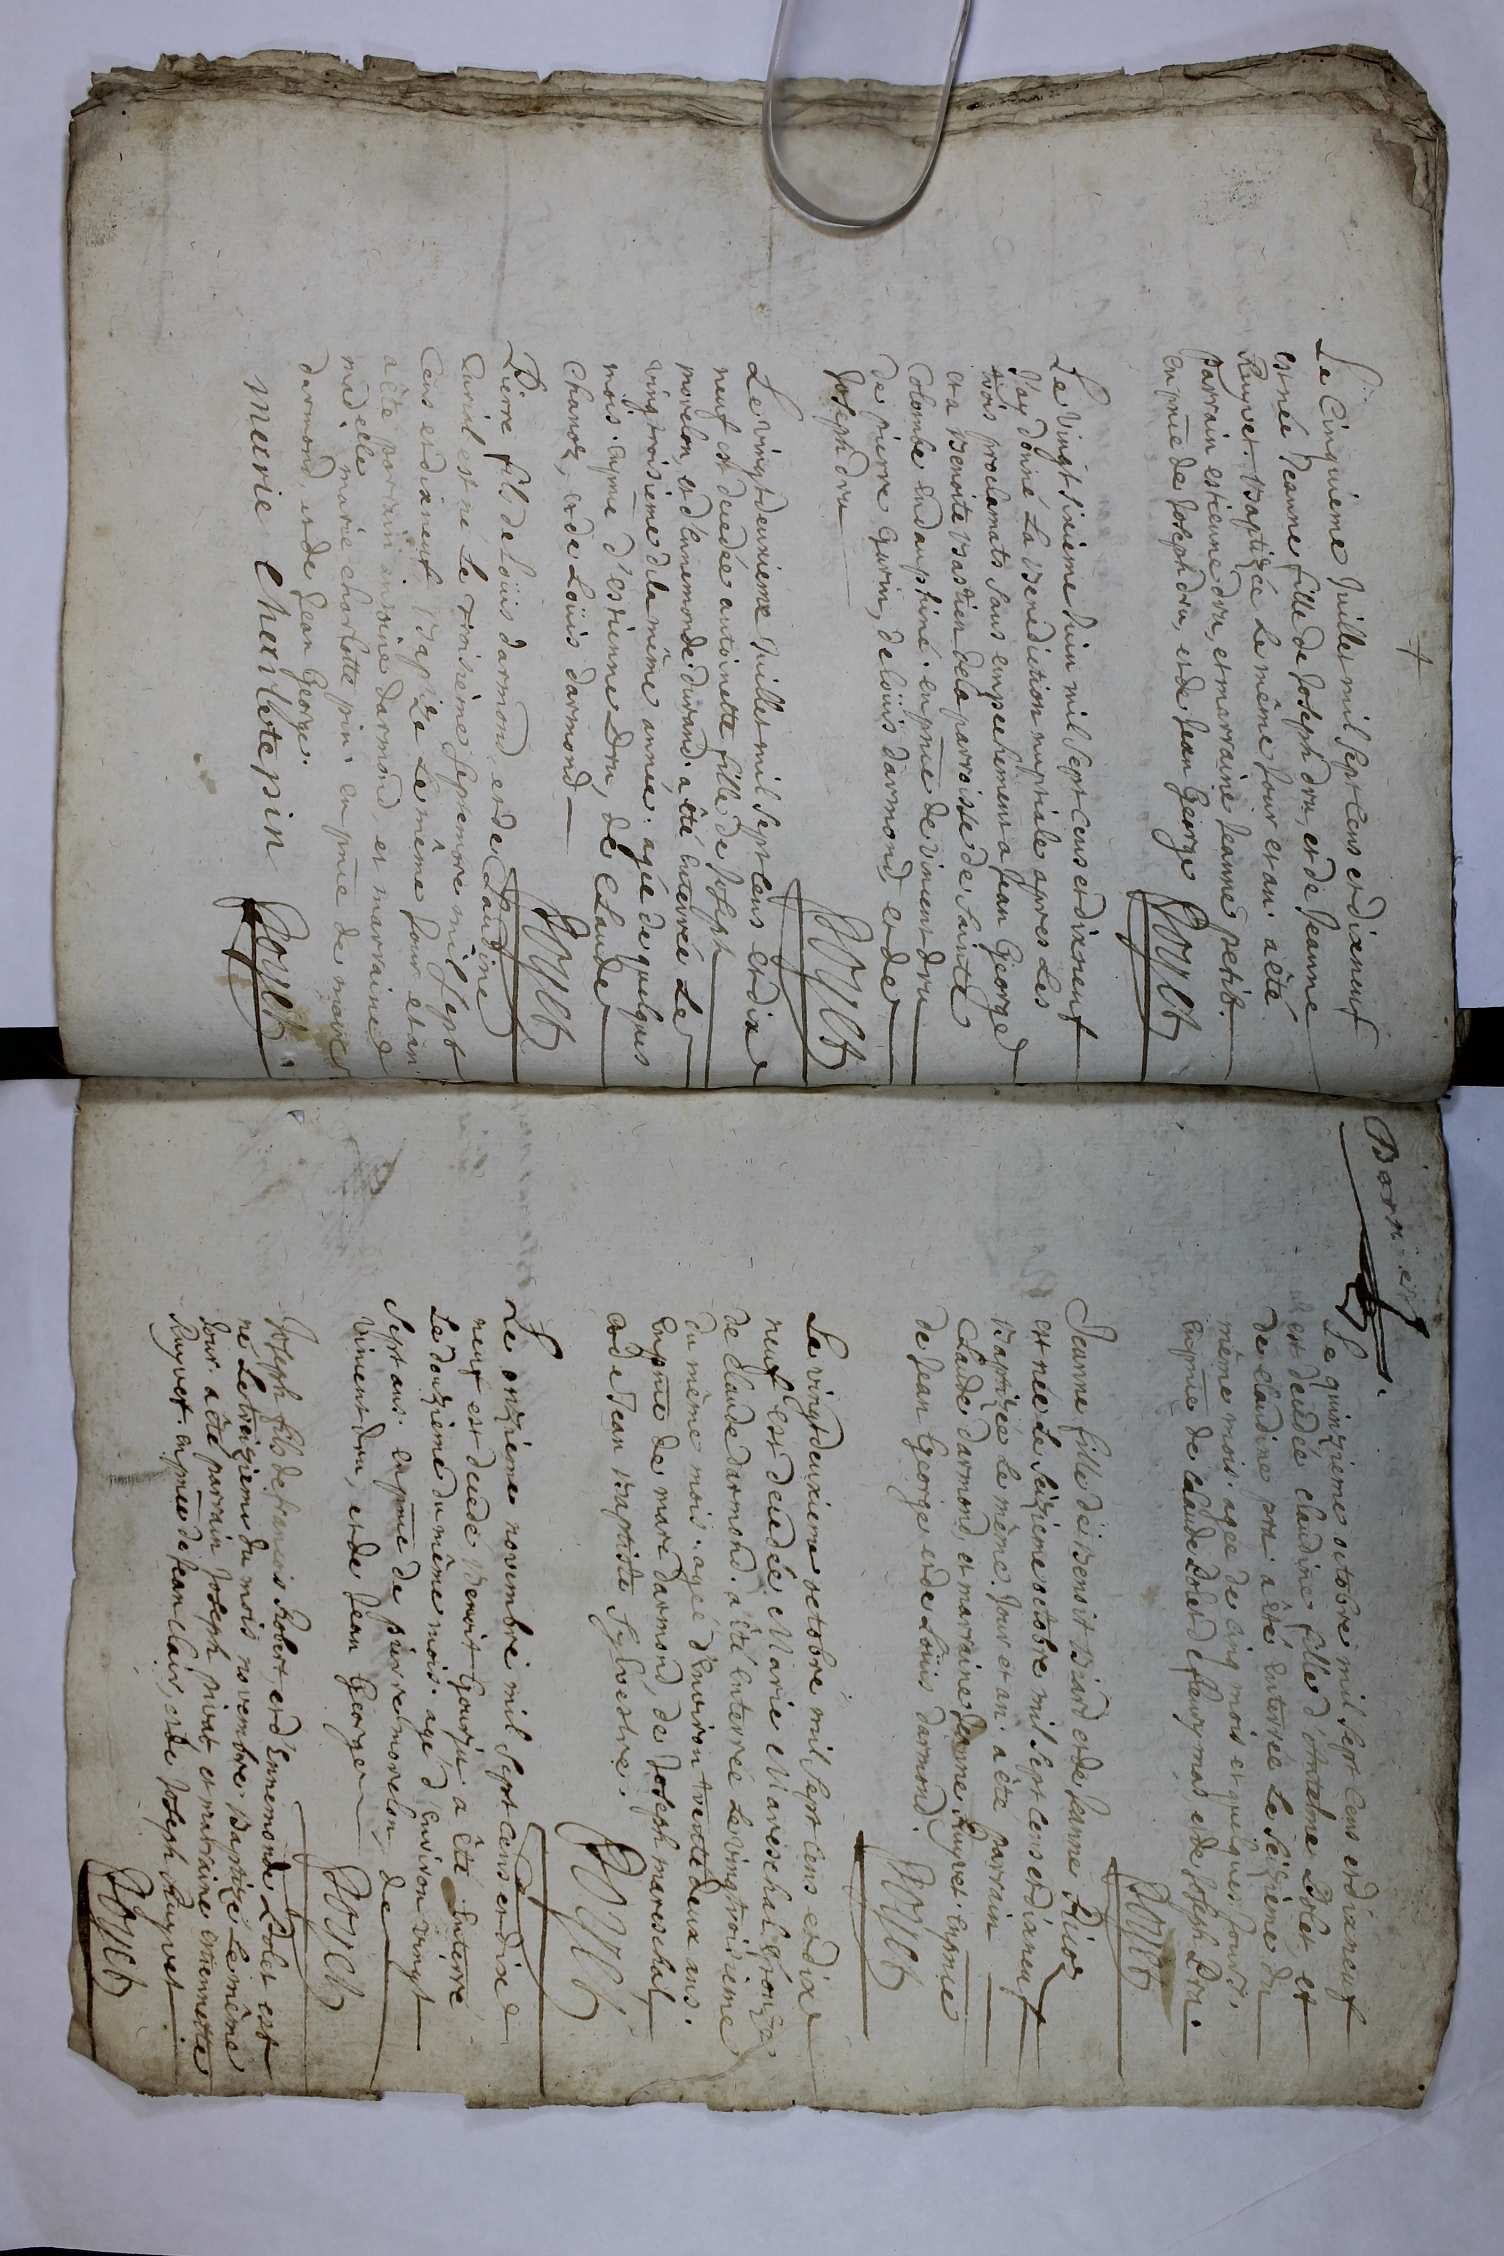 +
Le Cinquieme Juillet mil Sept Cens et dixneuf
est née Jeanne fille de Joseph dru, et de Jeanne
Ruyvet. Baptizée le même jour et an. a été
parrain estienne dru, et marraine Jeanne petit.
en pnce de Joseph dru, et de Jean George
Le vingt sixieme Juin mil Sept cens et dixneuf
J'ay donné La Benediction nuptiale apres Les
trois proclamats Sans empeschement a Jean George
et a Benoite Bastien de la parroisse de Sainte
Colombe en dauphiné. en pnce de vincent dru
de pierre Gurin, de Loüis darmond, et de
Joseph dru
Le vingt deuxieme Juillet mil Sept Cens et dix
neuf est decedée antoinette fille de Joseph
morelon, et d'Ennemonde durand. a été Enterrée Le
vingt troisieme de la même année. agée de quelques
mois. en pnce d'estienne Dru, de Claude
Chanor, et de Loüis darmond
Pierre fils de Loüis darmond, et de Claudine
Curial est né Le troisième Septembre mil Sept
Cens et dixneuf Baptizé Le même Jour et an
a été parrain antoine darmond, et marraine
madelle marie charlotte pin. en pnce de marc
darmond, et de Jean George.
Marie Charlote pin
Le quinzieme octobre mil Sept Cens et dixneuf
est decedée claudine fille d'Anthelme Dolet, et
de claudine a été Enterrée Le Seizieme du
même mois. agée de cinq mois et quelques Jours.
en pnce de claude Dolet de et de Joseph Dru.
Jeanne fille de Benoit Biard et de Jeanne
est née Le Seizieme octobre mil Sept Cens et dixneuf
Baptizée Le même Jour et an. a été parrain
Claude darmond, et marraine Jeanne Ruyvet. en pnce
de Jean George et de Loüis darmond.
Le vingt deuxieme octobre mil Sept Cens et dix
neuf est decedée Marie Mareschal
de Claude darmond. a été Enterrée Le vingtroisieme
du même mois. agée d'Environ trente deux ans.
en pnce de marc darmond, de Joseph mareschal
et de Jean Baptiste Sylvestre.
Le onzieme novembre mil Sept Cens et dix
neuf est decedé Benoit Gourju a été Enterré
Le douzieme du même mois. agé d'Environ vingt
Sept ans. en pnce de pierre morelon, de
vincent dru, et de Jean George
Joseph fils de francois Robert, et d'Ennemonde Dolet est
né Le treizieme du mois novembre Baptizé Le même
Jour. a été parrain Joseph pivat, et marraine estiennette
Ruyvet. en pnce de Jean Clair, et de Joseph Ruyvet